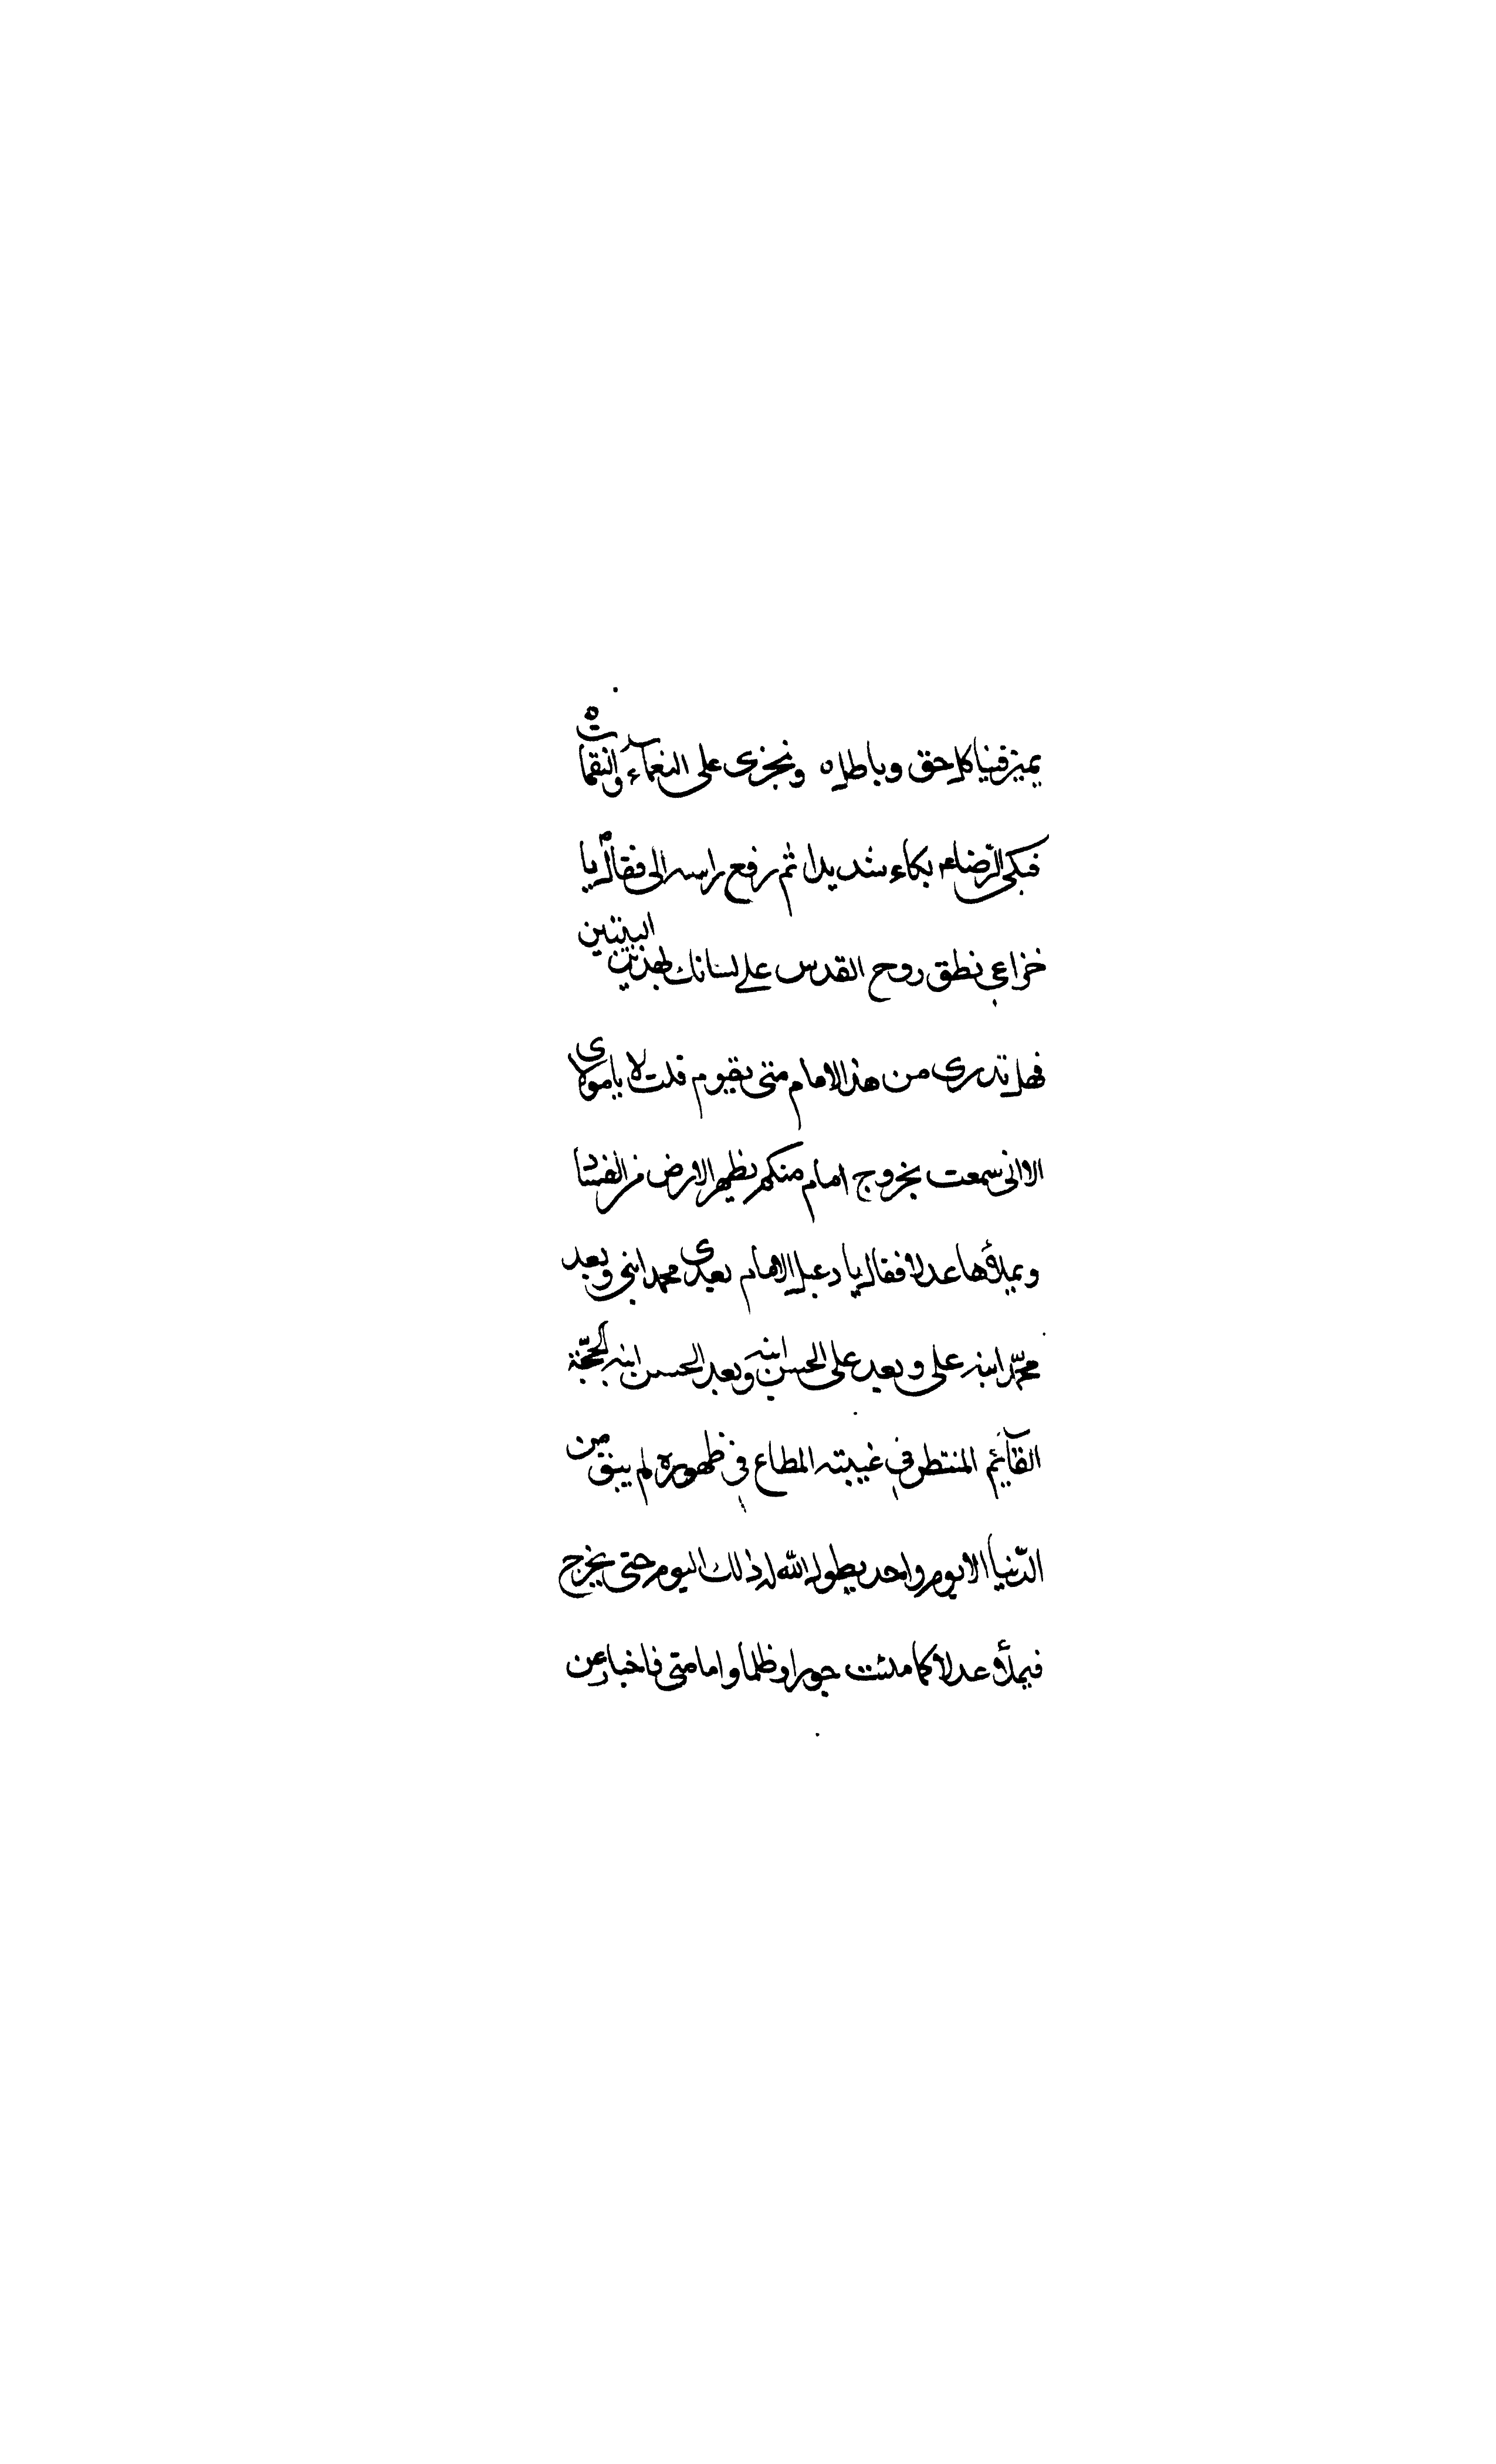 يميز فينا كل حق وباطل ه ونجزى على النعمآء والنقمات ه
فبكى الرّضا ء م بكاء شديدا ثم رفع راسه الى فقال يا
خزاعي نطق روح القدس على لسانك بهذين البيتين
فهل تدرى من هذا الامام متى يقوم قلت لا يا مولاى
الا انى سمعت بخروج امام منكم يطهر الارض من الفساد
ويملأها عدلا فقال يا دعبل الامام بعدى محمد ابنى وبعد
محمّد ابنه على وبعد على الحسن ابنه وبعد الحسن ابنه الحجّة
القآئم المنتظر في غيبته المطاع في ظهوره لم يبق من
الدّنيا الا يوم واحد يطول الله له ذلك اليوم حتى يخرج
فيملأ عدلا كما ملئت جورا وظلما واما متى فاخبار عن